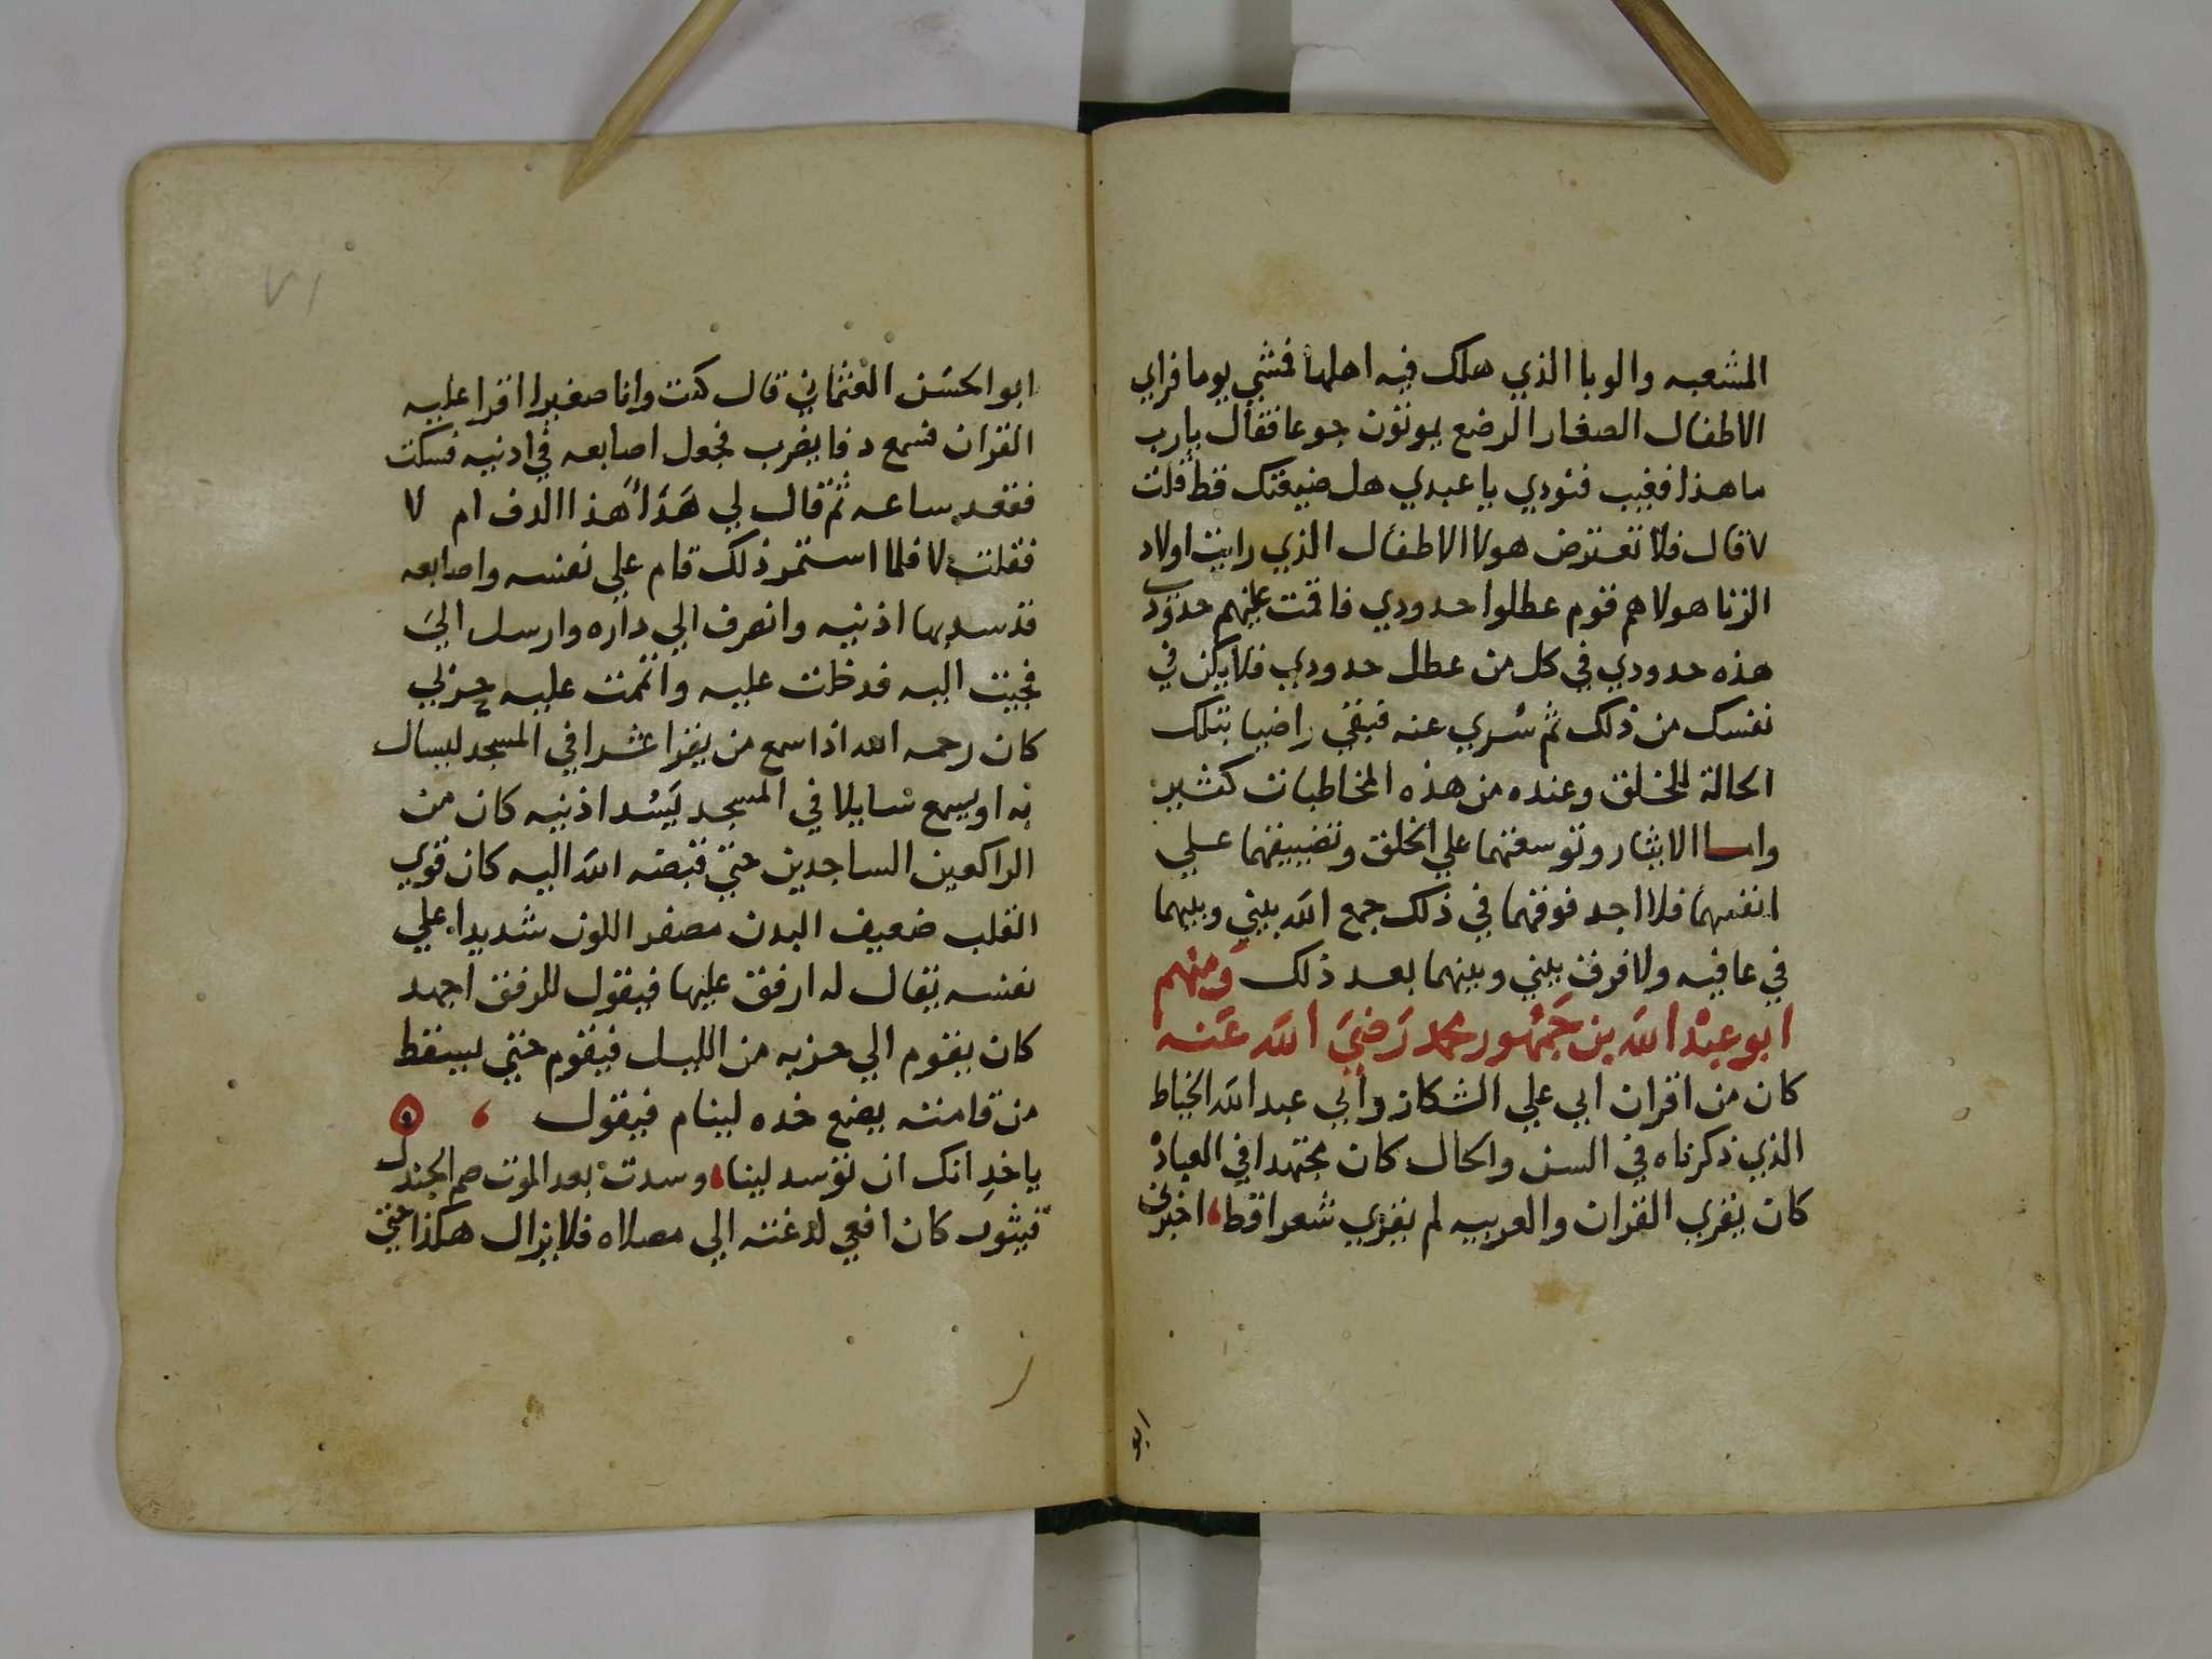 المشعبه والوبا الذي هلك فيه اهلها فمشي يوما فراي
الاطفال الصغار الرضع يموتون جوعا فقال يارب
ما هذا فغيب فنودي يا عبدي هل ضيعتك قط قلت
لا قال فلا تعترض هولا الاطفال الذي رايت اولاد
الزنا هولا هم قوم عطلوا حدودي فاقمت عليهم حدودي
هذه حدودي في كل من عطل حدودي فلا يكن في
نفسك من ذلك ثم سُري عنه فبقي راضيا بتلك
الحالة للخلق وعنده من هذه المخاطبات كثير
واما الايثار وتوسعتهما علي الخلق وتضييقهما علي
انفسهما فلا اجد فوقهما في ذلك جمع الله بيني وبينهما
في عافيه ولا فرق بيني وبينهما بعد ذلك ومنهم
ابو عبد الله بن جمهور محمد رَضِيَ الله عَنه
كان من اقران ابي علي الشكاز وابي عبد الله الخياط
الذي ذكرناه في السن والحال كان مجتهدا في العباده
كان يقري القران والعربيه لم يقري شعرا قط اخبرني
ابو
٧١
ابو الحسن العثماني قال كنت وانا صغيرا اقرا عليه
القران فسمع دفا يضرب فجعل اصابعه في اذنيه فسكت
فقعد ساعه ثم قال لي هَذا هذا الدف ام لا
فقلت لا فلما استمر ذلك قام علي نفسه واصابعه
قد سد بها اذنيه وانصرف الي داره وارسل الي
فجيت اليه فدخلت عليه واتممت عليه حزبي
كان رحمه الله اذا سمع من يقرا عشرا في المسجد ليسال
به او يسمع سايلا في المسجد يَسُد اذنيه كان من
الراكعين الساجدين حتي قبضه الله اليه كان قوي
القلب ضعيف البدن مصفر اللون شديدا علي
نفسه يقال له ارفق عليها فيقول للرفق اجهد
كان يقوم الي حزبه من الليل فيقوم حتي يسقط
من قامته يضع خده لينام فيقول
يا خدِ انك ان توسد لينا وسدت بعد الموت صم الجندل
فيثور كان افعي لدغته الي مصلاه فلا يزال هكذا حتي